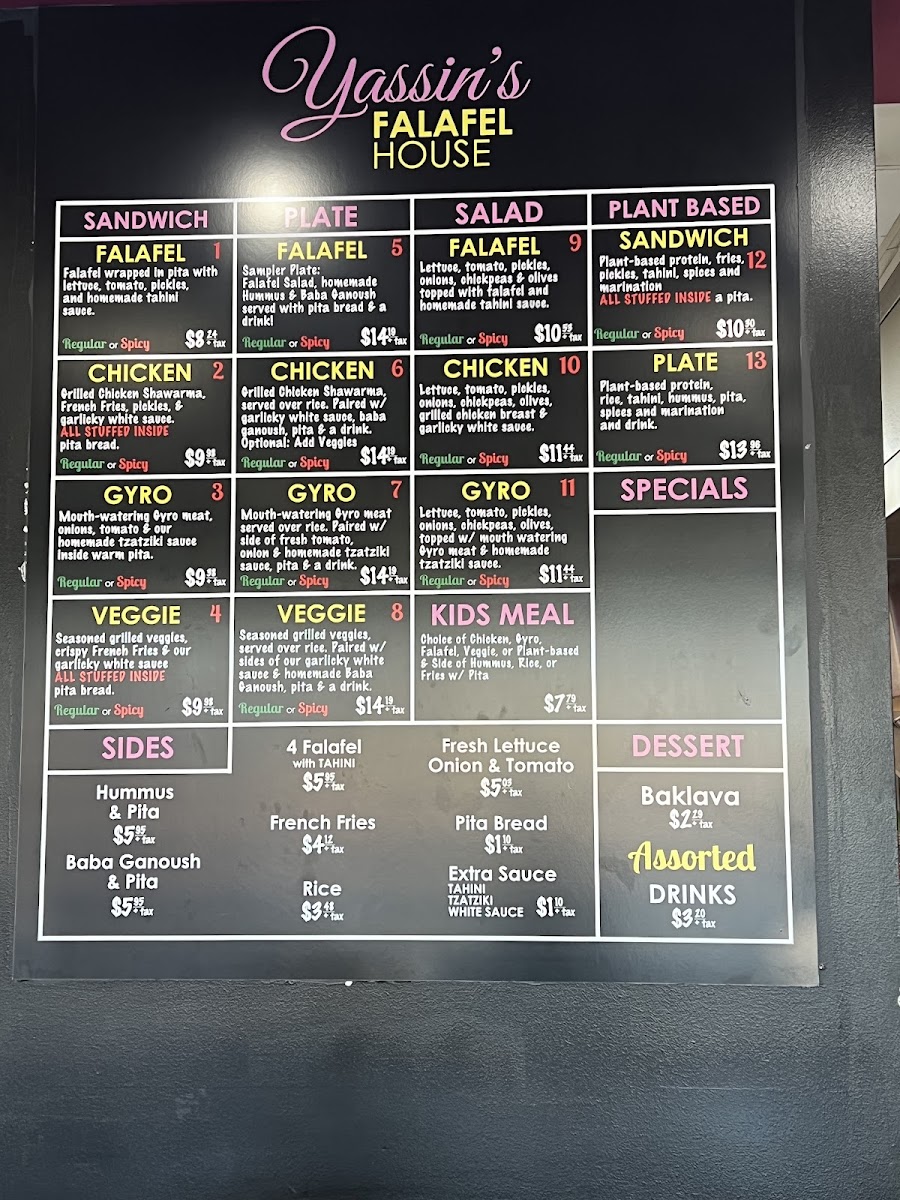 Yassin's
FALAFEL
HOUSE
SANDWICH
FALAFEL 1
Falafel wrapped in pita with
lettuce, tomato, pickles,
and homemade tahini
sauce.
Regular or Spicy $8.24 + tax
CHICKEN 2
Grilled Chicken Shawarma,
French Fries, pickles, &
garlicky white sauce.
ALL STUFFED INSIDE
pita bread.
Regular or Spicy $9.98 + tax
GYRO 3
Mouth-watering Gyro meat,
onions, tomato & our
homemade tzatziki sauce
inside warm pita.
Regular or Spicy $9.98 + tax
VEGGIE 4
Seasoned grilled veggies,
crispy French Fries & our
garlicky white sauce
ALL STUFFED INSIDE
pita bread.
Regular or Spicy $9.98 + tax
PLATE
FALAFEL 5
Sampler Plate:
Falafel Salad, homemade
Hummus & Baba Ganoush
served with pita bread & a
drink!
Regular or Spicy $14.19 + tax
CHICKEN 6
Grilled Chicken Shawarma,
served over rice. Paired w/
garlicky white sauce, baba
ganoush, pita & a drink.
Optional: Add Veggies
Regular or Spicy $14.19 + tax
GYRO 7
Mouth-watering Gyro meat
served over rice. Paired w/
side of fresh tomato,
onion & homemade tzatziki
sauce, pita & a drink.
Regular or Spicy $14.19 + tax
VEGGIE 8
Seasoned grilled veggies,
served over rice. Paired w/
sides of our garlicky white
sauce & homemade Baba
Ganoush, pita & a drink.
Regular or Spicy $14.19 + tax
SALAD
FALAFEL 9
Lettuce, tomato, pickles,
onions, chickpeas & olives
topped with falafel and
homemade tahini sauce.
Regular or Spicy $10.95 + tax
CHICKEN 10
Lettuce, tomato, pickles,
onions, chickpeas, olives,
grilled chicken breast &
garlicky white sauce.
Regular or Spicy $11.44 + tax
GYRO 11
Lettuce, tomato, pickles,
onions, chickpeas, olives,
topped w/ mouth watering
Gyro meat & homemade
tzatziki sauce.
Regular or Spicy $11.44 + tax
KIDS MEAL
Choice of Chicken, Gyro,
Falafel, Veggie, or Plant-based
& Side of Hummus, Rice, or
Fries w/ Pita
$7.79 + tax
PLANT BASED
SANDWICH
Plant-based protein, fries, 12
pickles, tahini, spices and
marination
ALL STUFFED INSIDE a pita.
Regular or Spicy $10.90 + tax
PLATE 13
Plant-based protein,
rice, tahini, hummus, pita,
spices and marination
and drink.
Regular or Spicy $13.96 + tax
SPECIALS
SIDES
Hummus
& Pita
$5.95 + tax
Baba Ganoush
& Pita
$5.95 + tax
4 Falafel
with TAHINI
$5.95 + tax
French Fries
$4.12 + tax
Rice
$3.48 + tax
Fresh Lettuce
Onion & Tomato
$5.03 + tax
Pita Bread
$1.10 + tax
Extra Sauce
TAHINI
TZATZIKI
WHITE SAUCE $1.10 + tax
DESSERT
Baklava
$2.29 + tax
Assorted
DRINKS
$3.20 + tax